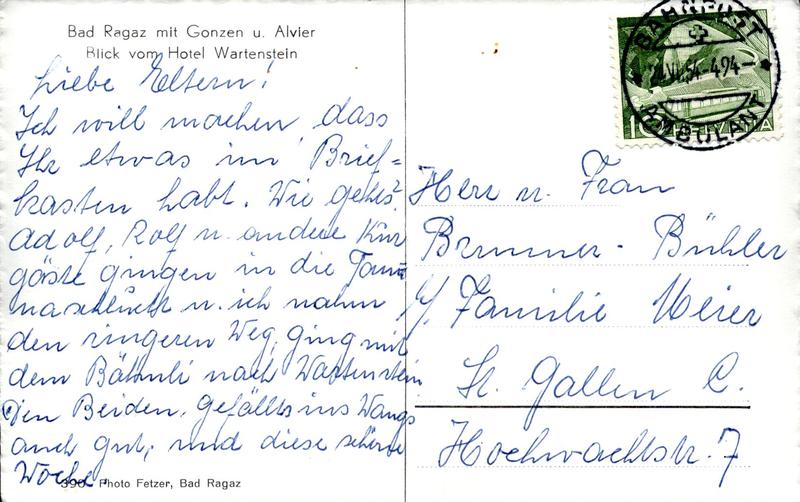 Bad Ragaz mit Gonzen u. Alvier
Blick vom Hotel Wartenstein
Liebe Eltern!
Ich will machen, dass
Ihr etwas im Brief=
kasten habt. Wie geht's?
Adolf, Rolf u. andere Kur
gäste gingen in die Tami=
naschlucht u. ich nahm
den ringeren Weg, ging mit
dem Bähnli nach Wartenstein.
Den Beiden, gefällts ins Wangs
auch gut, und diese schöne
Woche.
390 Photo Fetzer, Bad Ragaz
BAHNPOST
VI.54-494-
AMBULANT
10
Herr u. Frau
Brunner - Bühler
c/. Familie Meier
St. Gallen C.
Hochwachtstr. 7